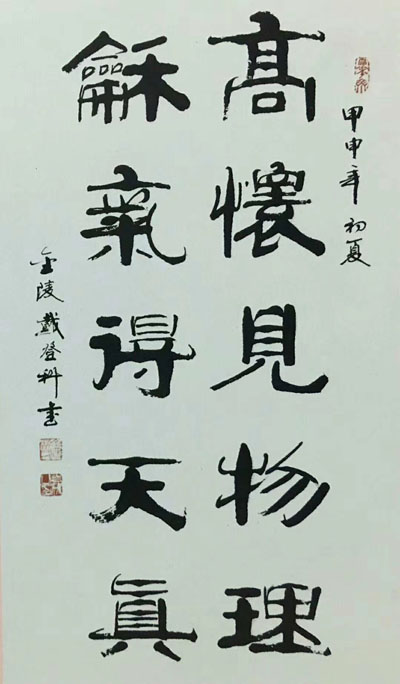 甲申年初夏
高懷見物理
龢氣得天真
金陵戴登科书